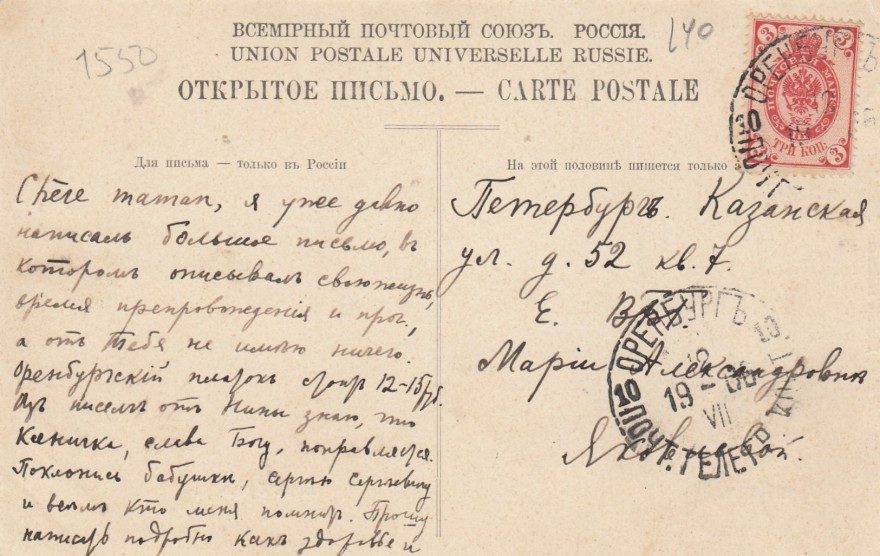 ВСЕМІРНЫЙ ПОЧТОВЫЙ СОЮЗЪ. РОССІЯ.
UNION POSTALE UNIVERSELLE RUSSIE.
ОТКРЫТОЕ ПИСЬМО. — CARTE POSTALE
1550
140
3 3
ТРИ КОП.
3 3
Для письма — только въ Россіи
Chère maman, я уже давно
написалъ большое письмо, въ
которомъ описывалъ свою жизнь,
время препровожденія и проч.,
а отъ тебя не имѣю ничего.
Оренбургскій платокъ 12-15 руб.
Изъ писемъ отъ Нины знаю, что
слава Богу, поправляется.
Поклонись бабушкѣ, Сергѣю Сергѣевичу
и всѣмъ кто меня помнитъ. Прошу
написать подробно какъ здоровье и
На этой половинѣ пишется только
Петербургъ. Казанская
ул. д. 52 кв. 7.
Е. В.
Маріи Александровнѣ
ОРЕНБУРГЪ
10
19
VII
10 ПОЧТ. ТЕЛЕГР.